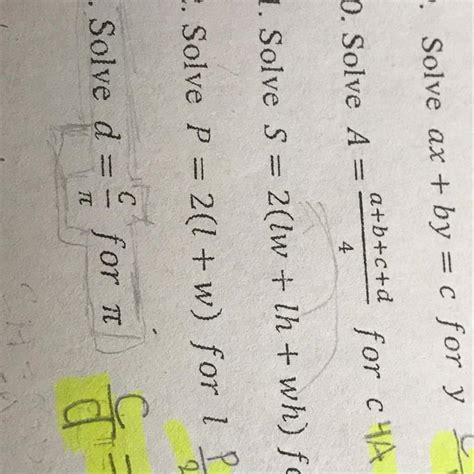 . Solve ax + by = c for y
0. Solve A = \frac{a+b+c+d}{4} for c 4A
1. Solve S = 2(lw + lh + wh) fo
2. Solve P = 2(l + w) for l \frac{P}{2}
. Solve d = \frac{C}{π} for π \frac{C}{d} =